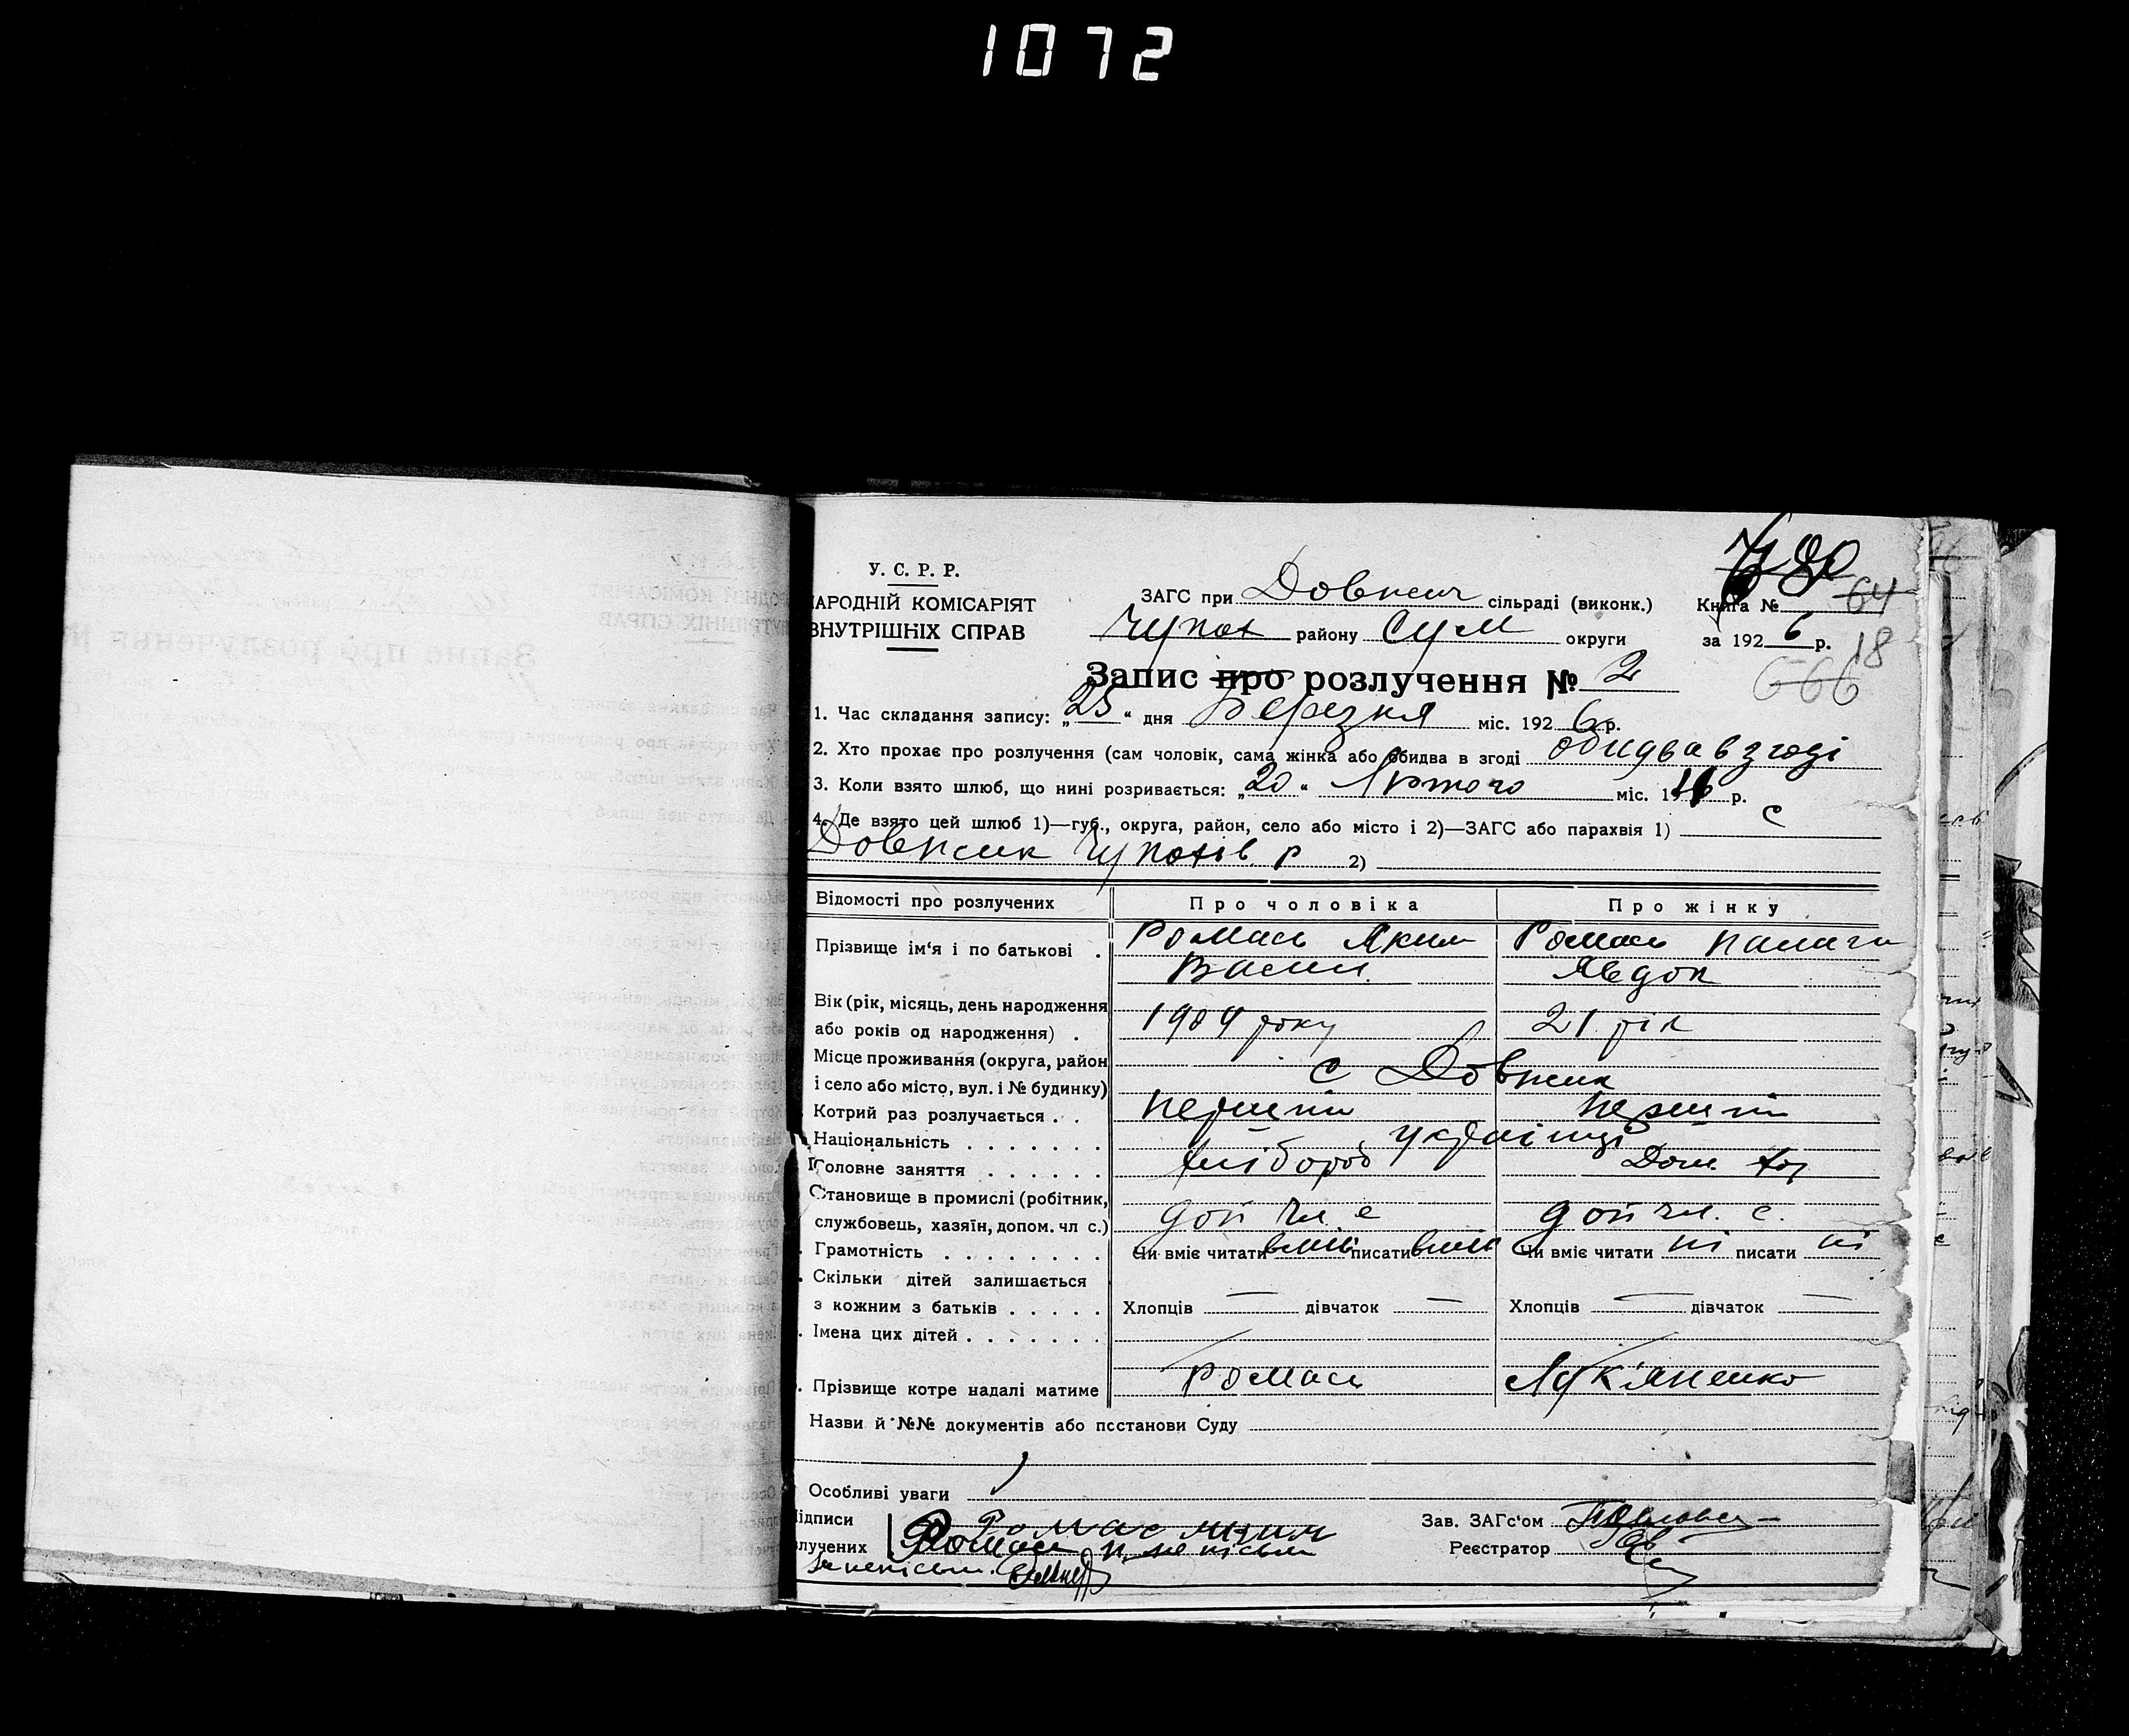 1072
У. С. Р. Р.
АРОДНІЙ КОМІСАРІЯТ
ВНУТРІШНІХ СПРАВ
ЗАГС при Довжик сільраді (виконк.)
Чупах району Сум округи
Книга № 64
за 192 6 р. 18
80
666
Запис про розлучення № 2
1. Час складання запису: „25“ дня Березня міс. 192 6 р.
2. Хто прохає про розлучення (сам чоловік, сама жінка або обидва в згоді обидва в згоді
3. Коли взято шлюб, що нині розривається: „20“ Лютого міс. 19 р.
4. Де взято цей шлюб 1)—губ., округа, район, село або місто і 2)—ЗАГС або парахвія 1) с
Довжик Чупахів р 2)
Відомості про розлучених Про чоловіка Про жінку
Прізвище ім'я і по батькові . Ромась Яким Ромась
Васил Явдок
Вік (рік, місяць, день народження
або років од народження) . 1904 року 21 рік
Місце проживання (округа, район
і село або місто, вул. і № будинку) с Довжик
Котрий раз розлучається . . перший перший
Національність . . . . . . . українці
Головне заняття . . . . . . хлібороб Дом. гос
Становище в промислі (робітник,
службовець, хазяїн, допом. чл с.) доп чл. с доп чл. с.
Грамотність . . . . . . . . Чи вміє читати вміє писати вміє Чи вміє читати ні писати ні
Скільки дітей залишається
з кожним з батьків . . . . . Хлопців — дівчаток — Хлопців — дівчаток —
Імена цих дітей . . . . . . .
Прізвище котре надалі матиме Ромась Лук'яненко
Назви й №№ документів або псстанови Суду
Особливі уваги
Підписи Ромас
лучених Ромась н. не письм
за неписьм.
Зав. ЗАГс'ом
Реєстратор